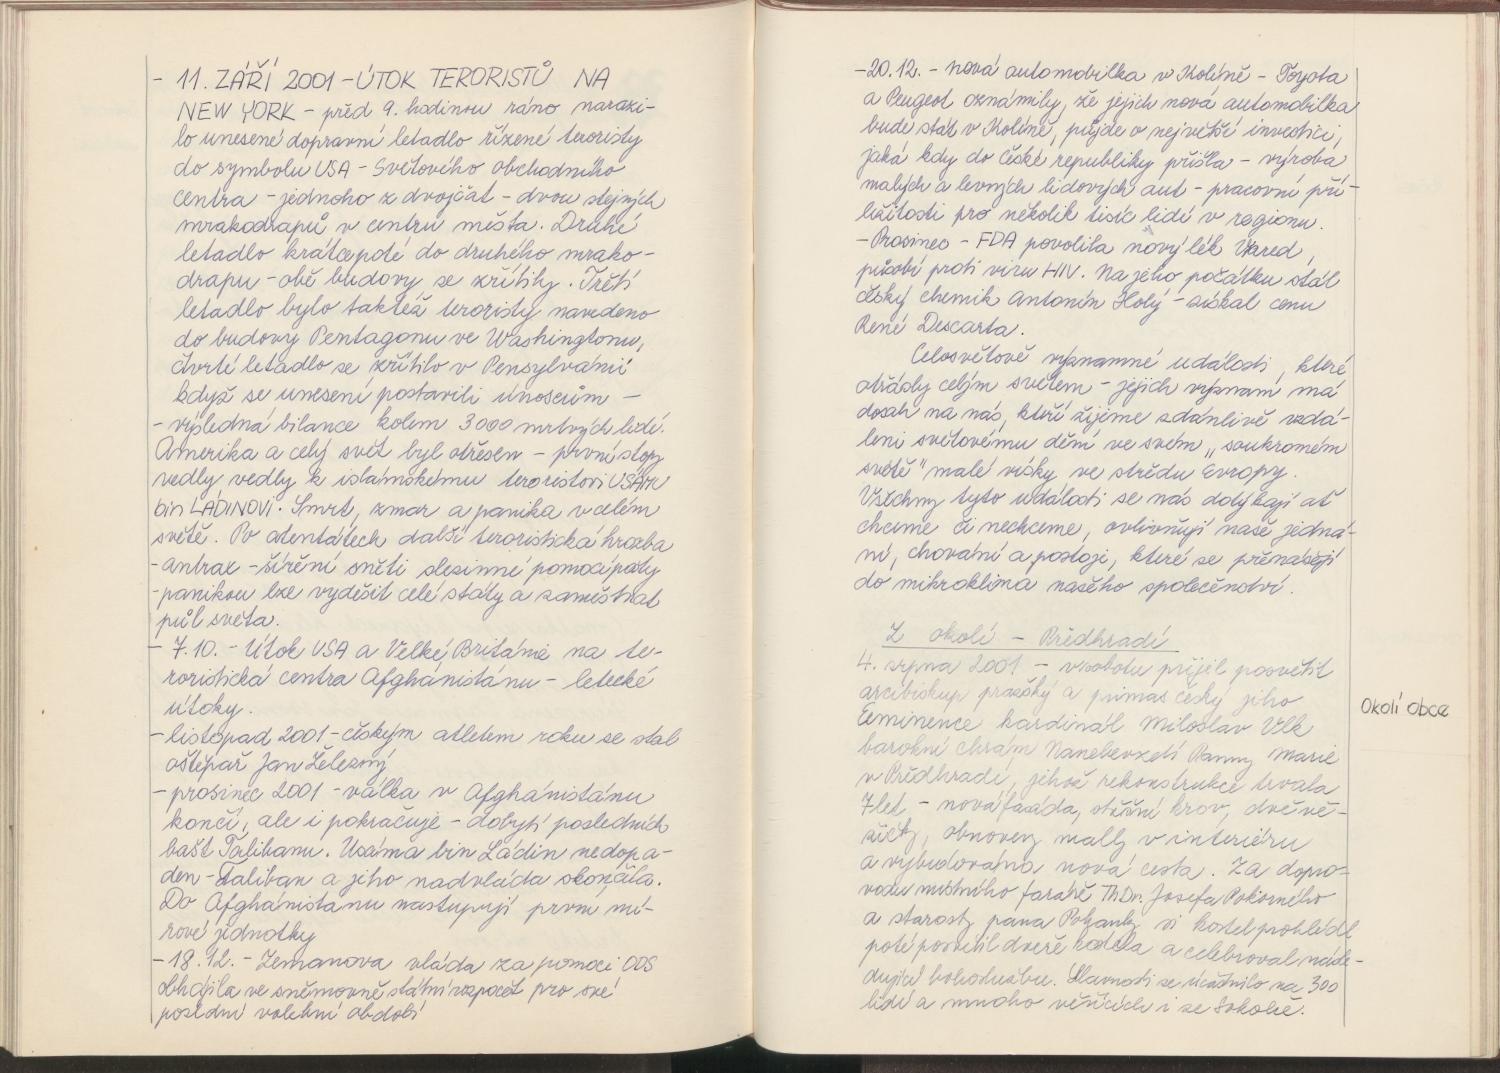 - 11. ZÁŘÍ 2001 - ÚTOK TERORISTŮ NA
NEW YORK - před 9. hodinou ráno narazi-
lo unesené dopravní letadlo řízené teroristy
do symbolu USA - Světového obchodního
centra - jednoho z dvojčat - dvou stejných
mrakodrapů v centru města. Druhé
letadlo krátce poté do druhého mrako-
drapu - obě budovy se zřítily. Třetí
letadlo bylo taktéž teroristy navedeno
do budovy Pentagonu ve Washingtonu,
čtvrté letadlo se zřítilo v Pensylvánii
když se unesení postavili únoscům -
- výsledná bilance kolem 3000 mrtvých lidí.
Amerika a celý svět byl otřesen - první stopy
vedly vedly k islámskému teroristovi USÁM
bin LÁDINOVI. Smrt, zmar a panika v celém
světě. Po atentátech další teroristická hrozba
- antrax - šíření sněti slezinné pomocí pošty
- panikou lze vyděsit celé státy a zaměstnat
půl světa.
- 7.10. - Útok USA a Velké Británie na te-
roristická centra Afghánistánu - letecké
útoky.
- listopad 2001 - českým atletem roku se stal
oštěpař Jan Železný
- prosinec 2001 - válka v Afghánistánu
končí, ale i pokračuje - dobytí posledních
bašt Talibanu. Usáma bin Ládin nedopa-
den - Taliban a jeho nadvláda skončila.
Do Afghánistánu nastupují první mí-
rové jednotky
- 18.12. - Zemanova vláda za pomoci ODS
obhájila ve sněmovně státní rozpočet pro své
poslední volební období
- 20.12. - nová automobilka v Kolíně - Toyota
a Peugeot oznámily, že jejich nová automobilka
bude stát v Kolíně, půjde o největší investici,
jaká kdy do České republiky přišla - výroba
malých a levných lidových aut - pracovní pří-
ležitosti pro několik tisíc lidí v regionu.
- Prosinec - FDA povolila nový lék Viread,
působí proti viru HIV. Na jeho počátku stál
český chemik Antonín Holý - získal cenu
René Descarta.
Celosvětově významné události, které
otřásly celým světem - jejich význam má
dosah na nás, kteří žijeme zdánlivě vzdá-
leni světovému dění ve svém „soukromém
světě" malé vísky ve středu Evropy.
Všechny tyto události se nás dotýkají ať
chceme či nechceme, ovlivňují naše jedná-
ní, chování a postoje, které se přenášejí
do mikroklima našeho společenství.
Z okolí - Předhradí
4. srpna 2001 - v sobotu přijel posvětit
arcibiskup pražský a primas český jeho
Eminence kardinál Miloslav Vlk
barokní chrám Nanebevzetí Panny Marie
v Předhradí, jehož rekonstrukce trvala
7 let - nová fasáda, střešní krov, dvě vě-
žičky, obnoveny malby v interiéru
a vybudována nová cesta. Za dopro-
vodu místního faráře ThDr. Josefa Pokorného
a starosty pana si kostel prohlédl
poté posvětil dveře kostela a celebroval násle-
dující bohoslužbu. Slavnosti se účastnilo na 300
lidí a mnoho věřících i ze Sokolče.
Okolí obce